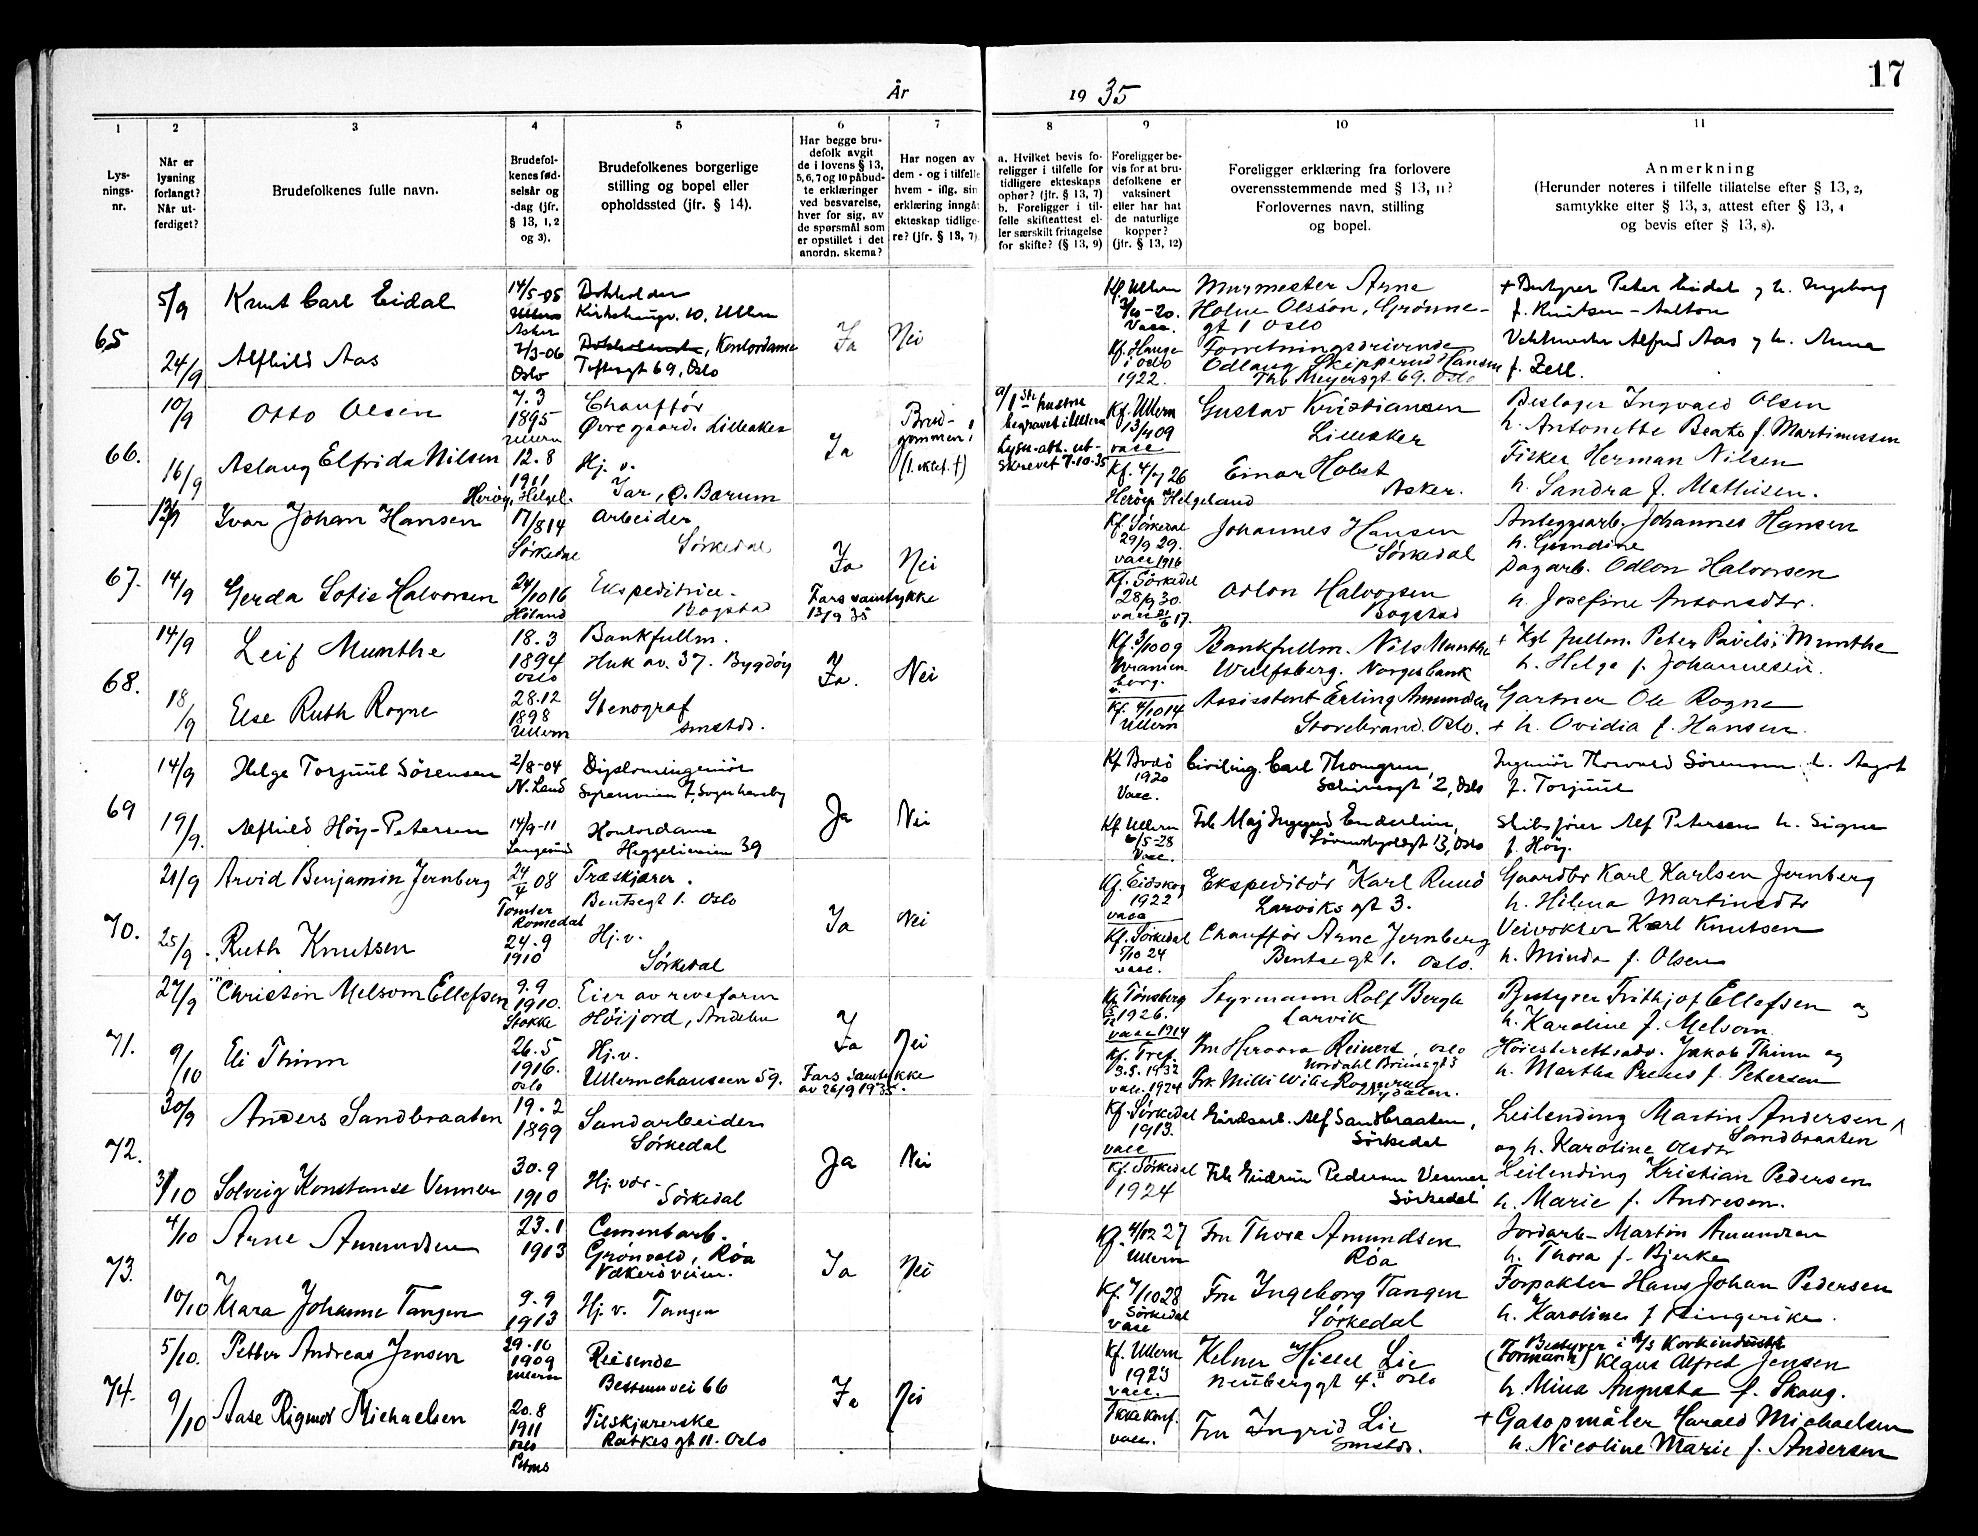 17
År 1935
1 2 3 4 5 6 7 8 9 10 11
Lys-
nings-
nr.
Når er
lysning
forlangt?
Når ut-
ferdiget?
Brudefolkenes fulle navn.
Brudefol-
kenes fød-
selsår og
-dag (jfr.
§ 13, 1, 2
og 3).
Brudefolkenes borgerlige
stilling og bopel eller
opholdssted (jfr. § 14).
Har begge bru-
defolk avgit
de i lovens § 13,
5, 6, 7 og 10 påbud-
te erklæringer
ved besvarelse,
hver for sig, av
de spørsmål som
er opstillet i det
anordn. skema?
Har nogen av
dem - og i tilfelle
hvem - iflg. sin
erklæring inngå:
ekteskap tidlige-
re? (jfr. § 13, 7)
a. Hvilket bevis fo-
religger i tilfelle for
tidligere ekteskaps
ophør? (jfr. § 13, 7)
b. Foreligger i til-
felle skifteattest el-
ler særskilt fritagelse
for skifte? (§ 13, 9)
Foreligger be-
vis for at bru-
defolkene er
vaksinert
eller har hat
de naturlige
kopper?
(jfr. § 13, 12)
Foreligger erklæring fra forlovere
overensstemmende med § 13, 11?
Forlovernes navn, stilling
og bopel.
Anmerkning
(Herunder noteres i tilfelle tillatelse efter § 13, 2,
samtykke efter § 13, 3, attest efter § 13, 4
og bevis efter § 13, 8).
65
5/9 Knut Carl Eidal 14/5-05 Asker
Kirkehaugv. 10, Ullern
Ja Nei
Kf. Ullern
-20. Vacc.
Murmester Arne
Holm Olsson, Grønne-
gt 1 Oslo
+ Bestyrer Peter Eidal og h. Ingeborg
f. Knutsen-Aalton
24/9 Alfhild Aas 7/3-06 Oslo
Kontordame
Toftesgt 69, Oslo
Kf. Hauge
i Oslo
1922.
Forretningsdrivende
Odlaug Skipperud Hansen
Thv Meyersgt 69. Oslo
Alfred Aas og h. Anna
f. Zetl.
66.
10/9 Otto Olsen 7.3 1895 Ullern
Chauffør
Øvre gaard. Lilleaker
Ja
Brud-
gommen
(1. ektef. †)
a/ 1ste hustru
begravet i Ullern
Lysn. att. ut-
skrevet 7-10-35
Kf. Ullern
13/4 09
vacc
Gustav Kristiansen
Lilleaker
Beslager Ingvald Olsen
h. Antonette Beate f. Martinussen
16/9 Aslaug Elfrida Nilsen 12.8 1911 Herøy, Helgel.
Hj. v.
Jar, Ø. Bærum
Kf. 4/7 26
Herøy Helgeland
Einar Holst
Asker.
Fisker Herman Nilsen
h. Sandra f. Mathisen.
67.
13/9 Ivar Johan Hansen 17/8 14 Sørkedal
Arbeider
Sørkedal
Ja Nei
Kf. Sørkedal
29/9 29.
vacc 1916
Johannes Hansen
Sørkedal
Anleggsarb. Johannes Hansen
h. Gundine
14/9 Gerda Sofie Halvorsen 24/10 16 Høland
Ekspeditrice.
Bogstad
Fars samtykke
13/9 35
Kf. Sørkedal
28/9 30.
vacc 21/6 17.
Odlon Halvorsen
Bogstad
Dagarb. Odlon Halvorsen
h. Josefine Antonsdtr.
68.
14/9 Leif Munthe 18.3 1894 Oslo
Bankfullm.
Huk av. 37. Bygdøy
Ja. Nei
Kf. 3/10 09
Uranien
borg.
Bankfullm. Nils Munthe
Wulfsberg. Norges bank
+ Kgl fullm. Peter Pavels Munthe
h. Helga f. Johannesen.
18/9 Else Ruth Rogne 28.12 1898 Ullern
Stenograf
smstds.
Kf. 4/10 14
Ullern
Assistent Erling Amundsen
Storebrand. Oslo.
Gartner Ole Rogne
+ h. Ovidia f. Hansen.
69
14/9 Helge Torjuul Sørensen 2/8-04 N. Land
Diplomingeniør
Ja Nei
Kf Bodø
1920
Vacc.
Civiling. Carl Thomgren,
Schivesgt 2, Oslo
Ingeniør Thorvald Sørensen h. Aagot
f. Torjuul
19/9. Alfhild Høy-Petersen 14/9-11 Langesund
Kontordame
Heggeliveien 39
Kf Ullern
6/5-28
Vacc.
Frk Maj Ingegerd Enderlin,
Skibsfører Alf Petersen h. Signe
f. Høy.
70.
21/9 Arvid Benjamin Jernberg 24/4 08 Tomter Romedal
Træskjærer.
Bentsegt 1. Oslo
Ja Nei
Kf. Eidskog
1922
vacc
Ekspeditør Karl Ruud
Larviksgt 3.
Gaardbr Karl Karlsen Jernberg
h. Hilma Martinsdtr
25/9. Ruth Knutsen 24.9 1910
Hj. v.
Sørkedal
Kf. Sørkedal
5/10 24
vacc.
Chauffør Arne Jernberg
Bentsegt 1. Oslo.
Veivokter Karl Knutsen
h. Minda f. Olsen
71.
27/9 Christen Melsom Ellefsen 9.9 1910. Stokke
Eier av revefarm
Høijord, Andebu
Ja Nei
Kf Tønsberg
1926.
vacc 1914
Styrmann Rolf Bergh
Larvik
Bestyrer Frithjof Ellefsen og
h. Karoline f. Melsom.
9/10 Eli Thinn 26.5 1916. Oslo
Hj. v.
Ullernchauseen 59.
Fars samtykke
av 26/9 1935.
Kf. Tref.
3.5.1932
vacc. 1924
Reinert, Oslo
Nordahl Brunsgt 5
Frk. Milli Wilie Rognerud
Nydalen.
Høiesterettsadv. Jakob Thinn og
h. Martha Preus f. Petersen
72.
30/9 Anders Sandbraaten 19.2 1899
Sandarbeider
Sørkedal
Ja Nei
Kf. Sørkedal
1913.
vacc
Gårdsarb. Alf Sandbraaten,
Sørkedal
Leilending Martin Andersen
Sandbraaten
og h. Karoline Olsdtr
3/10 Solveig Konstanse Venner 30.9 1910
Hj. vær.
Sørkedal
Kf. Sørkedal
1924
Frk Gudrun Pedersen Venner
Sørkedal
Leilending Kristian Pedersen
h. Marie f. Andresen.
73.
4/10 Arne Amundsen 23.1 1913
Cementarb.
Grønvold, Røa
Vækerøveien.
Ja Nei
Kf. 4/12 27
Ullern
Fru Thora Amundsen
Røa
Jordarb. Martin Amundsen
h. Thora f. Bjerke
10/10 Klara Johanne Tangen 9.9 1913
Hj. v. Tangen
Kf. 7/10 28
Sørkedal
vacc
Fru Ingeborg Tangen
Sørkedal
Forpakter Hans Johan Pedersen
h. Karoline f Ringerike.
74.
5/10. Petter Andreas Jensen 29.10 1909 Ullern
Reisende
Bestumvei 66
Ja Nei
Kf. Ullern
1923
vacc.
Kelner Hissel Lie
Neuberggt 4. Oslo
Bestyrer i A/S Korkindustri
(Formann) Klaus Alfred Jensen
h. Mina Augusta f. Skaug.
9/10 Aase Rigmor Michaelsen 20.8 1911 Oslo Petrus
Tilskjærerske
Ratkesgt 11. Oslo
Ikke konf.
vacc.
Fru Ingrid Lie
smstds.
+ Gasopmåler Harald Michaelsen
h. Nicoline Marie f. Andersen